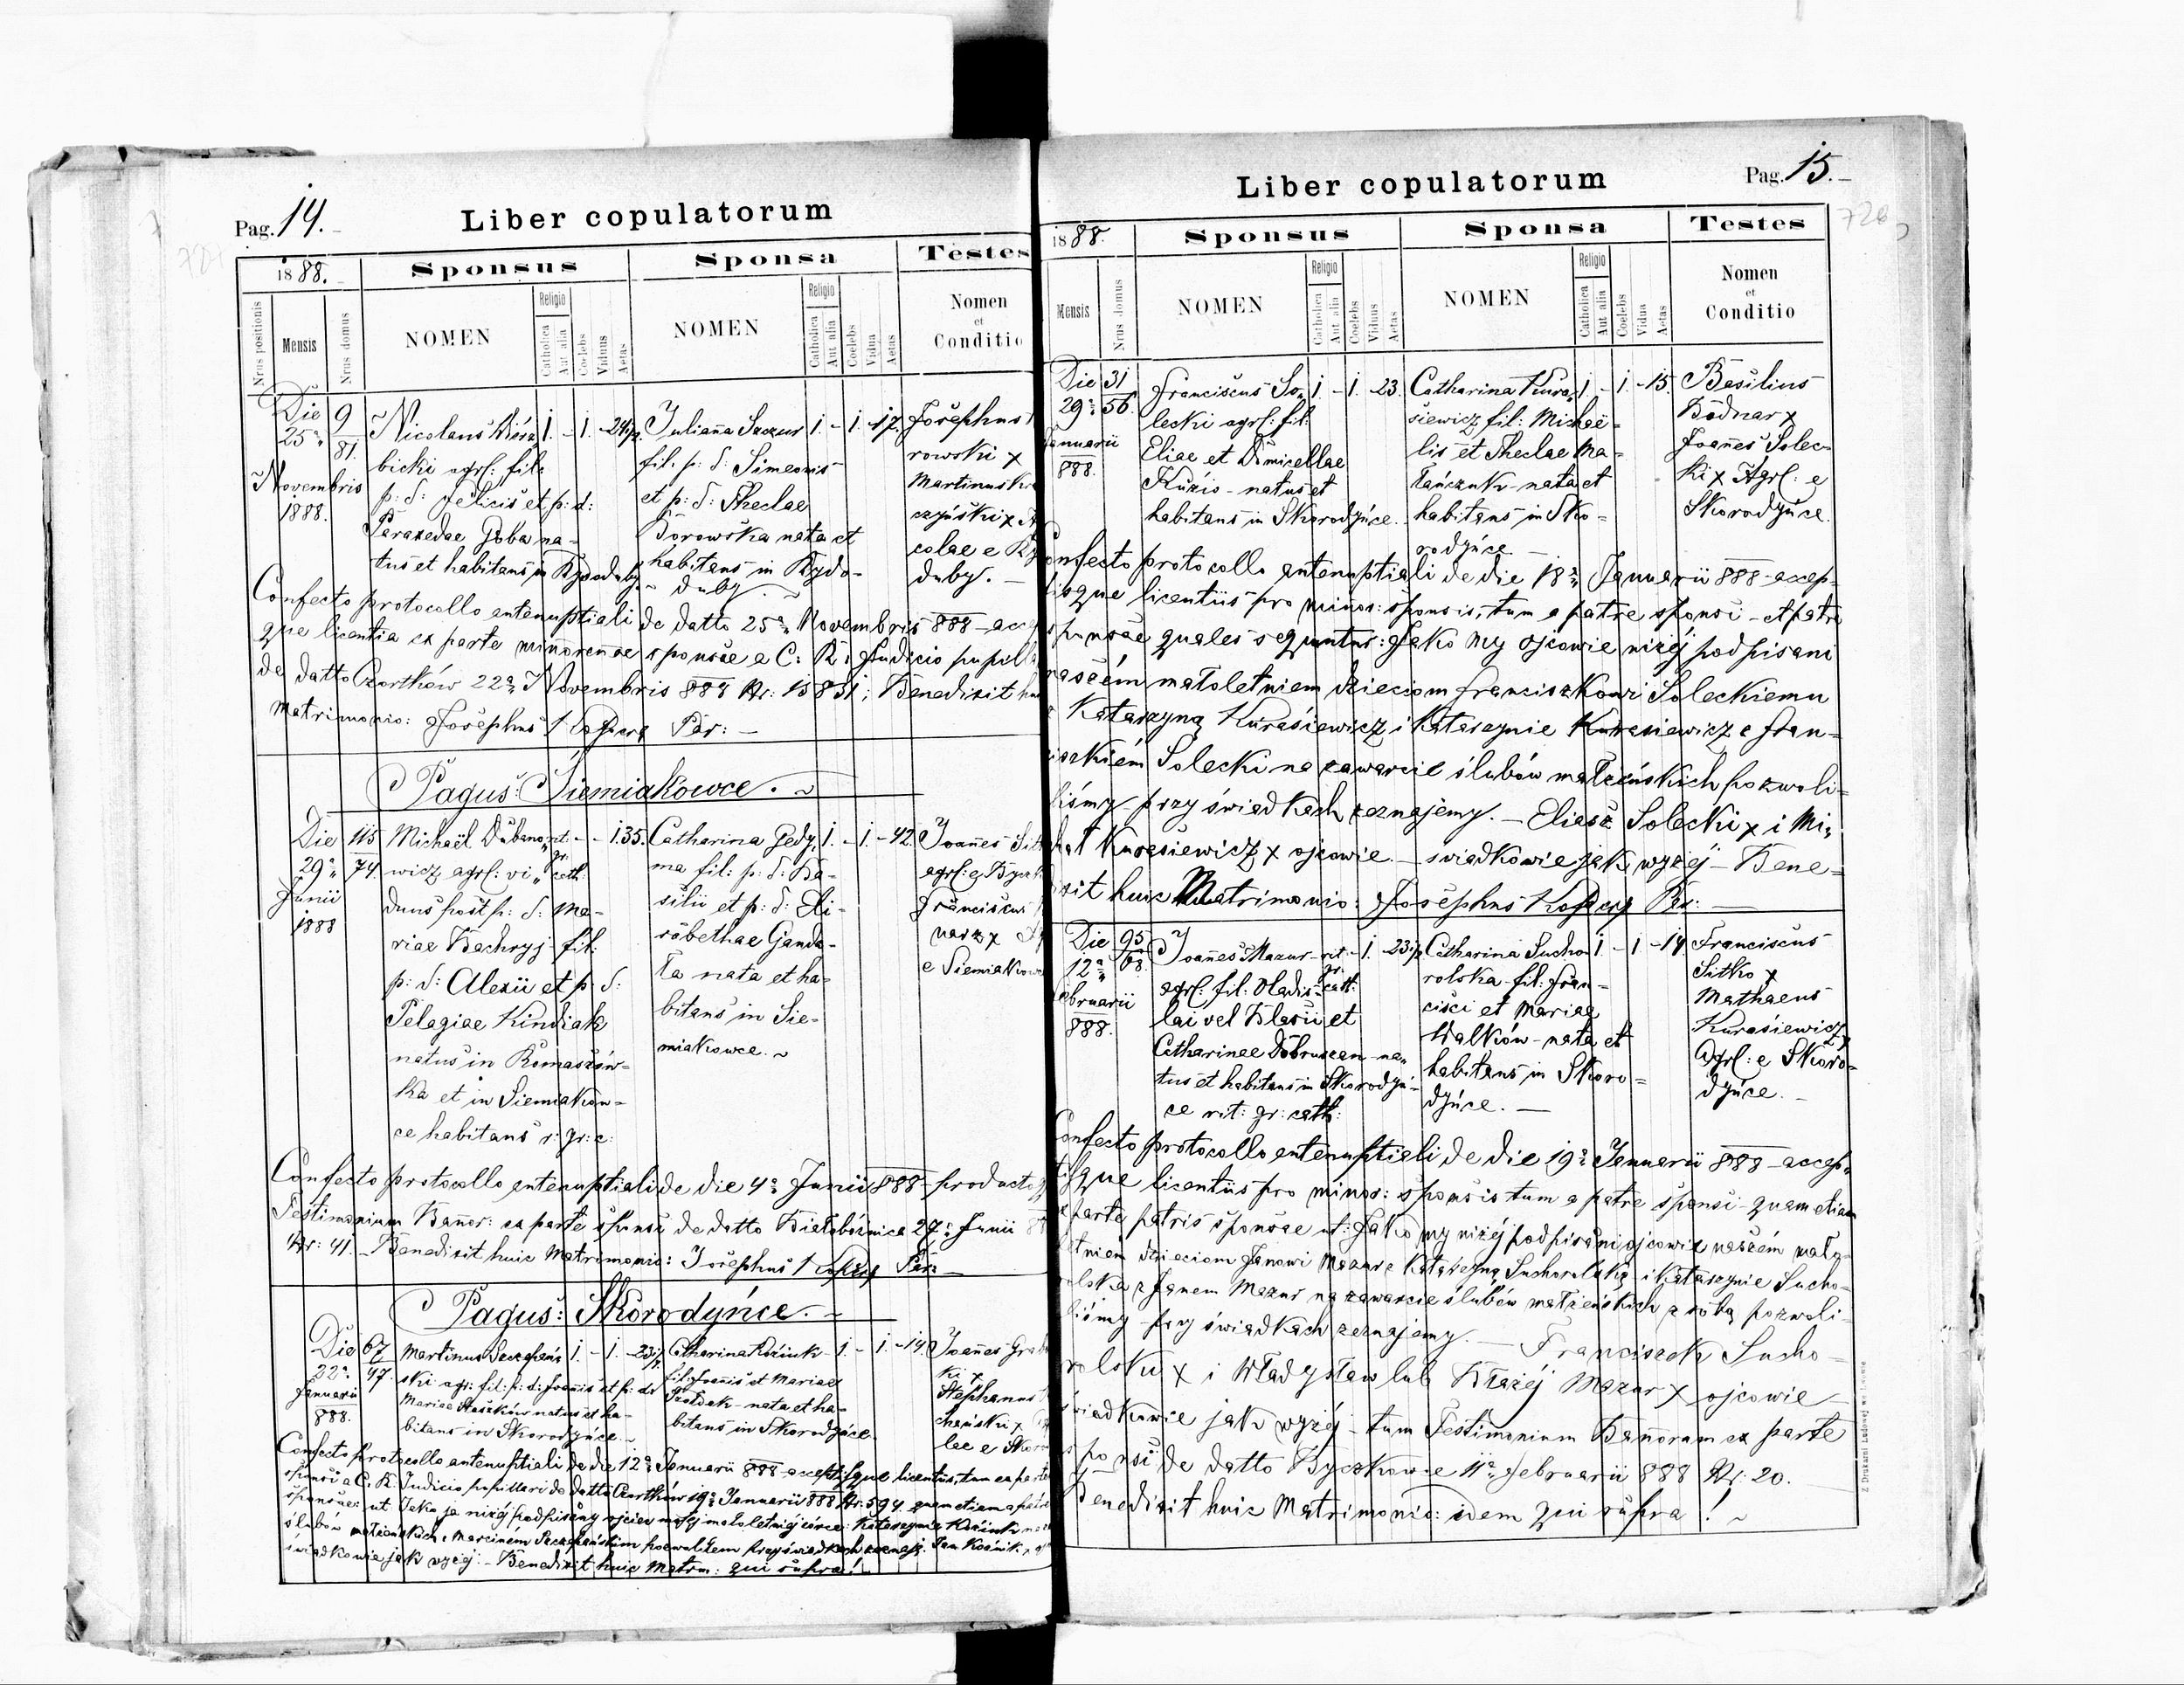 Pag. 14.
Liber copulatorum
1888.
Sponsus
Sponsa
Testes
Nrus positionis
Mensis
Nrus domus
NOMEN
Religio
Catholica
Aut alia
Coelebs
Viduus
Aetas
NOMEN
Religio
Catholica
Aut alia
Coelebs
Vidua
Aetas
Nomen
et
Conditio
Die
25a
Novembris
1888.
9
81.
Nicolaus
bicki agrl: fil:
p: d: Felicis et p: d:
Paraxedae na=
tus et habitans in
1. - 1. -
Julianna Szczur
fil. p: d: Simeonis
et p: d: Theclae
Borowska nata et
habitans in Rydo-
duby.
1. - 1. -17.
Josephus
rowski x
Martinus
colae e
duby. -
Confecto protocollo antenuptiali de datto 25a Novembris 888 -
que licentia ex parte minorennae sponsae a C: R: Judicio
de datto Czortków 22a Novembris 888 Nr: 15831; Benedixit
Matrimonio: Josephus Par: -
Pagus: Siemiakowce.
Die
29a
Junii
1888
115
74.
Michaël
wicz agrl: vi=
duus post p: d: Ma-
riae fil:
p: d: Alexii et p: d:
Pelagiae Kindiak
natus in Romaszów=
ka et in Siemiakow=
ce habitans r: gr: c:
rit:
gr:
cath:
- - 1.35.
Catharina Gedy
ma fil: p: d: Ba-
silii et p: d: Eli-
sabethae
ła nata et ha-
bitans in Sie-
miakowce.
1. - 1. - 42.
Joannes
agrl: e
Franciscus
narz x
e Siemiakow
Confecto protocollo antenuptiali de die 4a Junii 888 - producto
Testimonium Bannor: ex parte sponsi de datto Białobożnica 27a Junii
Nr: 41. - Benedixit huic Matrimonio: Josephus Par:
Pagus: Skorodyńce.
Die
22a
Januarii
888.
67
47
Martinus Szczepań
ski agr: fil: p: d: Joannis et p: d:
Mariae natus et ha-
bitans in Skorodyńce.
1. - 1. -
Catharina Koźniuk
fil: Joannis et Mariae
nata et ha-
bitans in Skorodyńce
1. - 1. -19.
Joannes
ki x
Stephanus
lae e Skoro
Confecto protocollo antenuptiali de die 12a Januarii 888 acceptisque licentiis, tum ex parte
sponsi a C. R. Judicio pupillari de datto Czortków 19a Januarii 888 Nr: 594. quam etiam a
sponsae: ut Jako ja niżej podpisany ojciec mojej małoletniej córce: Katarzynie
ślubów małżeńskich z Marcinem Szczepańskim pozwoliłem przy świadkach zeznaję. Jan
świadkowie jak wyżej. - Benedixit huic Matrm: qui supra!
Liber copulatorum
Pag. 15.
1888.
Sponsus
Sponsa
Testes
Mensis
Nrus domus
NOMEN
Religio
Catholica
Aut alia
Coelebs
Viduus
Aetas
NOMEN
Religio
Catholica
Aut alia
Coelebs
Vidua
Aetas
Nomen
et
Conditio
Die
29a
Januarii
888.
31
56.
Franciscus So=
lecki agrl: fil:
Eliae et Domicellae
Kuzio - natus et
habitans in Skorodyńce.
1. - 1. 23.
Catharina Kura=
siewicz fil: Michaë=
lis et Theclae Ma=
tańczuk - nata et
habitans in Sko=
rodyńce
1. - 1. -15.
Basilius
Bodnar x
Joannes Solec=
ki x Agrl: e
Skorodyńce.
onfecto protocollo antenuptiali de die 18a Januarii 888 - accep=
tisque licentiis pro minor: sponsis, tum a patre sponsi - et patre
sponsae quales sequntur: Jako my ojcowie niżej podpisani
naszém małoletniem dzieciom Franciszkowi Soleckiemu
z Katarzyną Kurasiewicz i Katarzynie Kurasiewicz z Fran=
ciszkiem Solecki na zawarcie ślubów małżeńskich pozwoli=
liśmy przy świadkach zeznajemy. - Eliasz Solecki x i Mi=
chał Kurasiewicz x ojcowie - świadkowie jak wyżej - Bene=
dixit huic Matrimonio: Josephus Par: -
Die
12a
ebruarii
888.
95
68.
Joannes Mazur
agrl: fil: Vladis=
lai vel Blasii et
Catharinae na=
tus et habitans in Skorodyń=
ce rit: gr: cath:
rit:
gr:
cath:
- 1. -
Catharina Sucho
rolska fil: Fran=
cisci et Mariae
Walków - nata et
habitans in Skoro=
dyńce. -
1 - 1 -19.
Franciscus
Sitko x
Mathaeus
Kurasiewicz x
Agrl: e Skoro=
dyńce. -
onfecto protocollo antenuptiali de die 19a Januarii 888 - accep=
tisque licentiis pro minor: sponsis tum a patre sponsi - quam etiam
e parte patris sponsae ut: Jako my niżej podpisani ojcowie naszém mało=
letniém dzieciom Janowi Mazur z Katarzyną Suchorolską i Katarzynie Sucho=
rolska z Janem Mazur na zawarcie ślubów małżeńskich z sobą pozwoli=
liśmy przy świadkach zeznajemy. - Franciszek Sucho=
rolski x i Władysław lub Błażéj Mazur x ojcowie
świadkowie jak wyżej - tum Testimonium Bannorum ex parte
sponsi de datto Byczkowce 11a Februarii 888 Nr: 20.
Benedixit huic Matrimonio: idem qui supra!